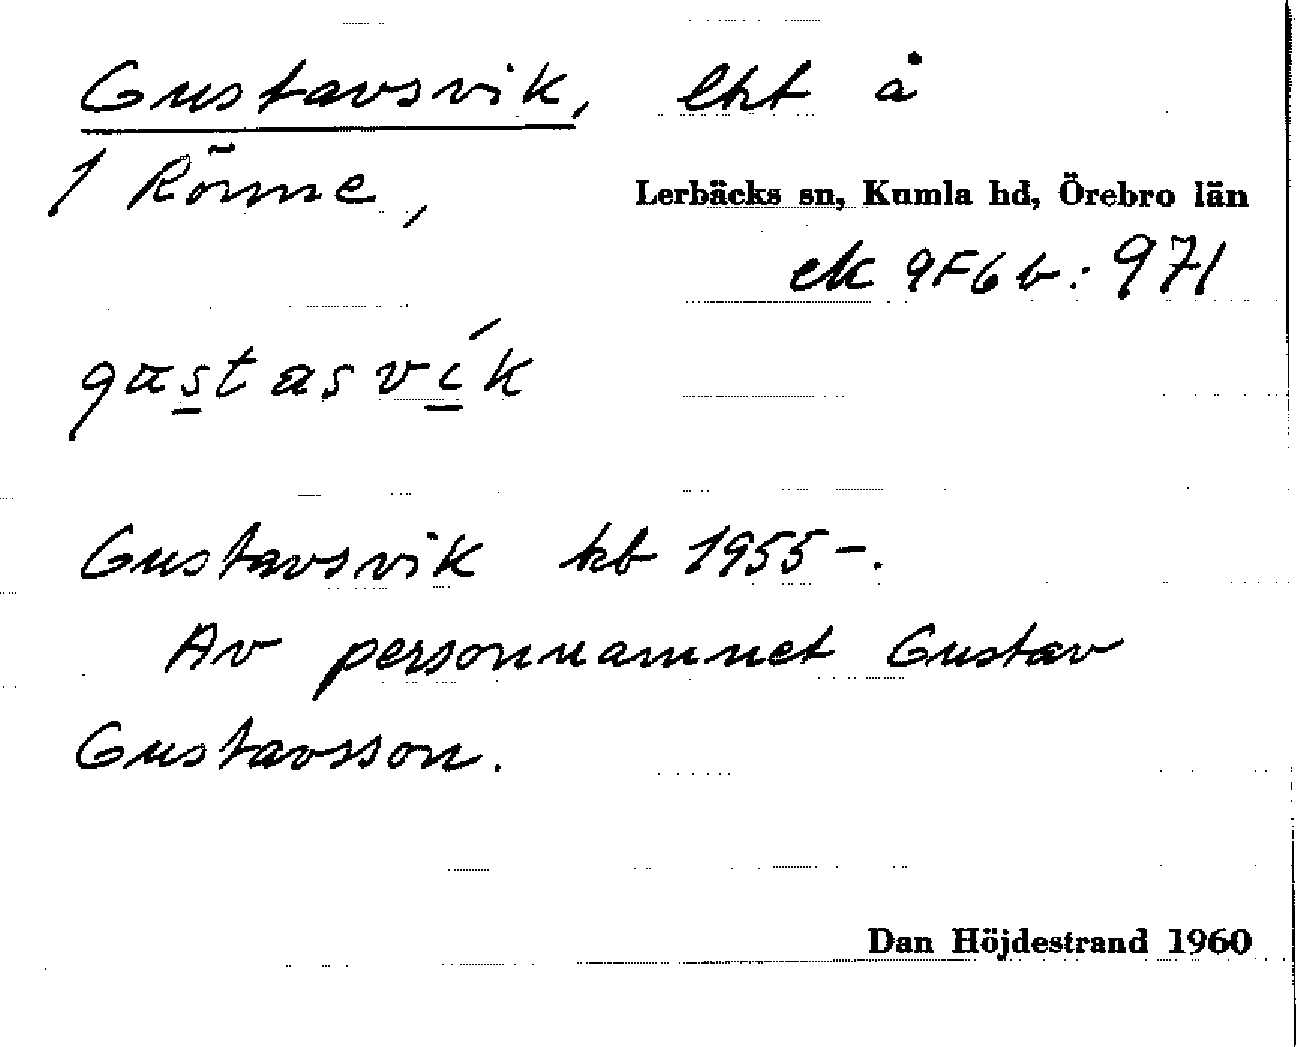 Gustavsvik, lht å
1 Rönne,
Lerbäcks sn, Kumla hd, Örebro län
ek 9F6b: 971
gustasvík
Gustavsvik kb 1955-.
Av personnamnet Gustav
Gustavsson.
Dan Höjdestrand 1960